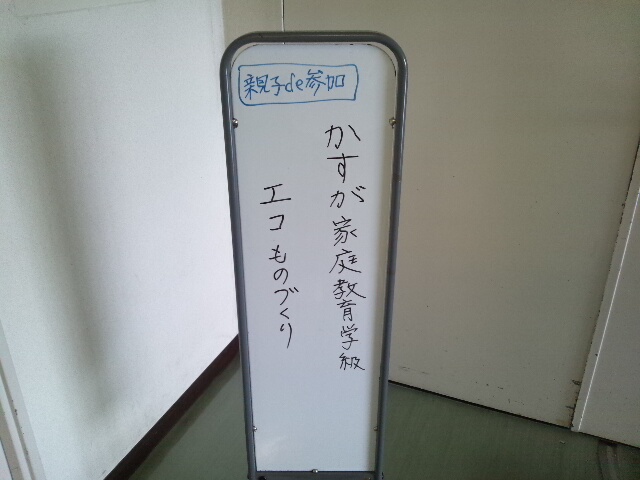 親子de参加
かすが家庭教育学級
エコものづくり